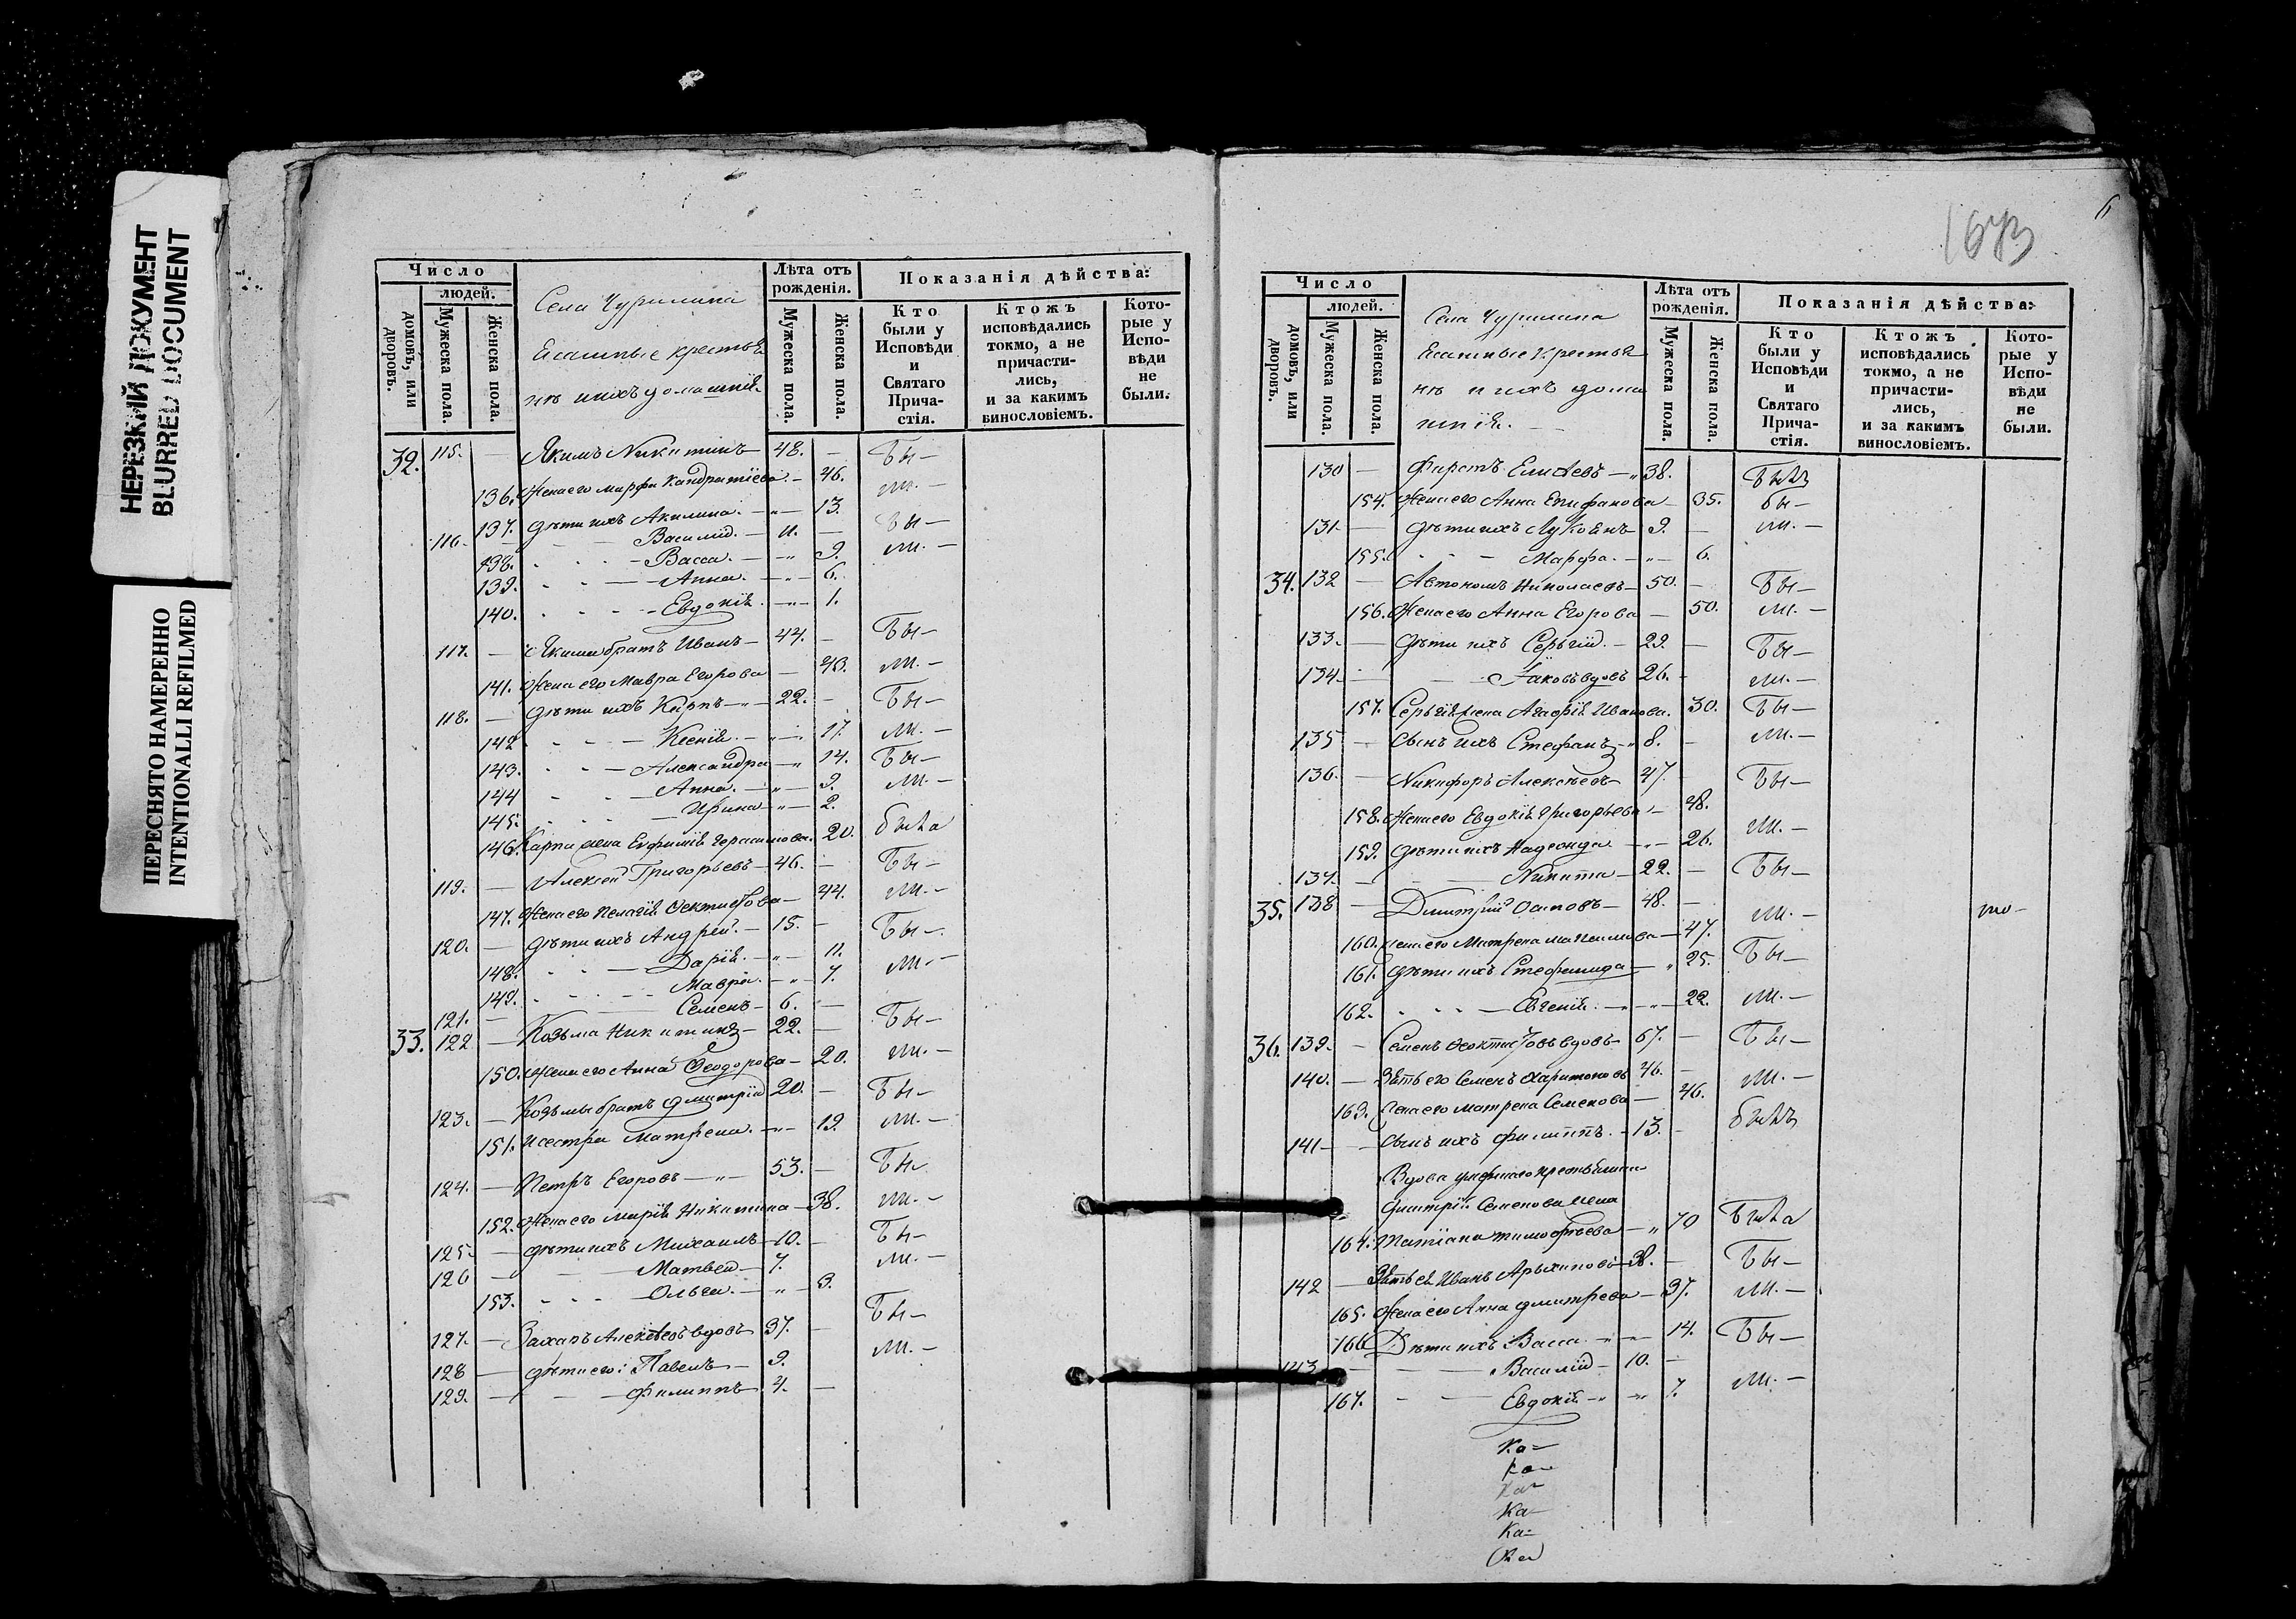 НЕРЕЗКИЙ ДОКУМЕНТ
BLURRED DOCUMENT
ПЕРЕСНЯТО НАМЕРЕННО
INTENTIONALLI REFILMED
Число
людей.
домовъ, или дворовъ.
Мужеска пола.
Женска пола.
Села Чурилина
Ясашные крестья
нѣ и ихъ домашнія
Лѣта отъ рожденія.
Мужеска пола.
Женска пола.
Показанія дѣйства:
Кто были у Исповѣди и Святаго Причастія.
Ктожъ исповѣдались токмо, а не причастились, и за какимъ винословіемъ.
Которые у Исповѣди не были.
32. 115. — Якимъ Никитинъ — 48. — Бы—
136. Жена его Марфа Кандратіева — 46. ли. —
137. Дѣти ихъ Акилина. — „ — 13.
116. — Василій. — 11. — Бы—
138. — Васса. — „ 9. ли. —
139. — Анна. — „ — 6.
140. — Евдокія. — „ — 1.
117. — Якима братъ Иванъ — 44. — Бы—
141. Жена его Мавра Егорова — 43. ли. —
118. — Дѣти ихъ Карпъ — „ — 22. — Бы—
142 — Ксенія. — „ — 17. ли. —
143. — Александра — „ 14. Бы—
144 — Анна. — „ — 9. ли —
145. — Ирина — „ — 2.
146. Карпа жена Евфимія Герасимова. 20. была
119. — Алексей Григорьевъ — 46. — Бы—
147. Жена его Пелагія Фектистова — 44. ли. —
120. — Дѣти ихъ Андрей. — 15. — Бы—
148. — Дарія. — „ — 11. ли. —
149. — Мавра. — „ — 7.
121. — Семенъ — 6. —
33. 122 — Козьма Никитинъ — 22. — Бы—
150. Жена его Анна Феодорова — 20. ли. —
123. — Козьмы братъ Дмитрій 20. — Бы—
151. и сестра Матрена. — „ — 19. ли. —
124. — Петръ Егоровъ — „ — 53. — Бы
152. Жена его Марія Никитина — 38. ли. —
125. — Дѣти ихъ Михаилъ — 10. — Бы—
126 — Матвей — 7. ли. —
153. — Ольга. — „ — 3.
127. — Захаръ Алексѣевъ вдовъ 37. — Бы—
128 — дѣти его: Павелъ — 9. ли. —
129. — Филиппъ — 4. —
6
Число
людей.
домовъ, или дворовъ.
Мужеска пола.
Женска пола.
Села Чурилина
Ясашные крестья
нѣ и ихъ дома
шнія. —
Лѣта отъ рожденія.
Мужеска пола.
Женска пола.
Показанія дѣйства:
Кто были у Исповѣди и Святаго Причастія.
Ктожъ исповѣдались токмо, а не причастились, и за какимъ винословіемъ.
Которые у Исповѣди не были.
130 — Фирстъ Елисѣевъ — „ 38. былъ
154. Жена его Анна Епифанова — 35. бы—
131 — Дѣти ихъ Лукоянъ — 9. — ли. —
155. — Марфа. — „ — 6.
34. 132 — Автономъ Николаевъ — 50. — Бы—
156. Жена его Анна Егорова — 50. ли. —
133. — Дѣти ихъ Сергій. — 29. — Бы—
134. — Іаковъ вдовъ 26. — ли. —
157. Сергія жена Агафія Иванова. 30. Бы—
135 — Сынъ ихъ Стефанъ — „ 8. — ли. —
136. — Никифоръ Алексѣевъ 47. — Бы—
158. Жена его Евдокія Григорьева — 48.
159. Дѣти ихъ Надежда — „ — 26. ли. —
137. — Никита — 22. — Бы—
35. 138 — Дмитрій Осиповъ — 48. — ли. —
160. Жена его Матрена — 47.
161. Дѣти ихъ Стефанида — „ 25. Бы—
162. — Евгенія. — „ — 22. ли. —
36. 139. — Семенъ Феоктистовъ вдовъ 67. — Бы—
140. — Зять его Семенъ Харитоновъ 46. —
163. Жена его Матрена Семенова — 46. ли. —
141 — Сынъ ихъ Филиппъ. — 13. — былъ
Вдова крестьянина
Дмитрія Семенова жена
164. Татіана Тимофѣева — „ 70 Была
142 — Зять ея Иванъ Архиповъ — 38. — Бы—
165. Жена его Анна Дмитрева — 37. ли. —
166 Дѣти ихъ Васса. — „ — 14. Бы—
143 — Василій — 10. —
167. — Евдокія — „ — 7. ли. —
Ка—
Ка—
Ка—
Ка—
Ка—